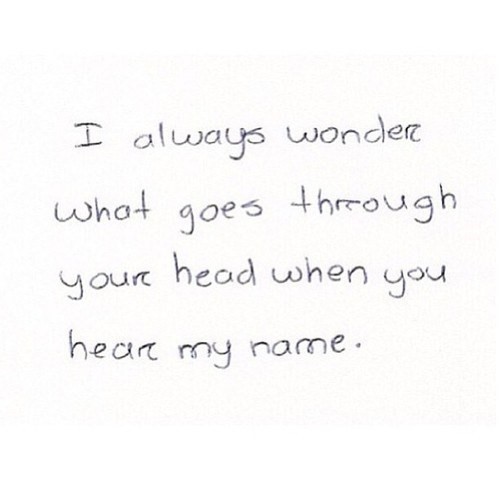 I always wonder
what goes through
your head when you
hear my name.